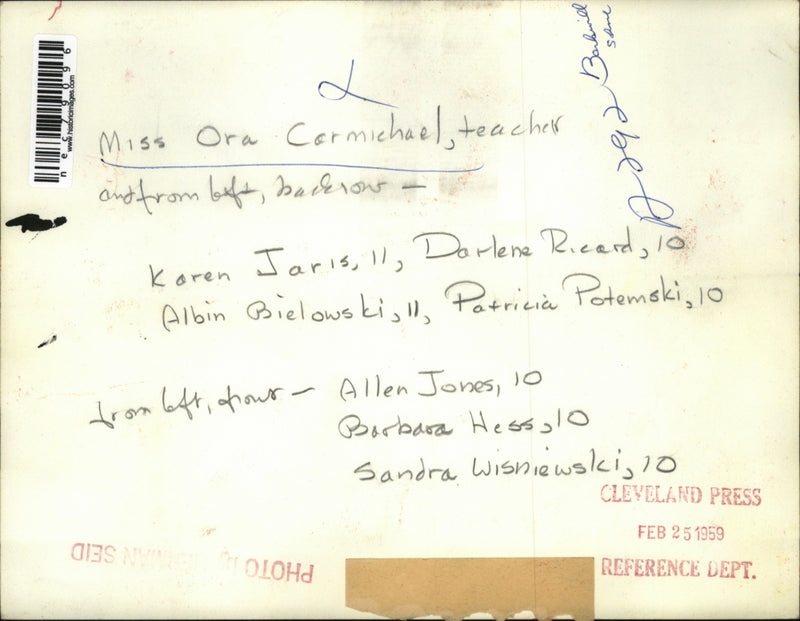 Miss Ora Carmichael, teacher
and from left, back row —
Karen Jaris, 11, Darlene Ricard, 10
Albin Bielowski, 11, Patricia Potemski, 10
from left, front — Allen Jones, 10
Barbara Hess, 10
Sandra Wisniewski, 10
CLEVELAND PRESS
FEB 25 1959
REFERENCE DEPT.
PHOTO by HERMAN SEID
nec79096
www.historicimages.com